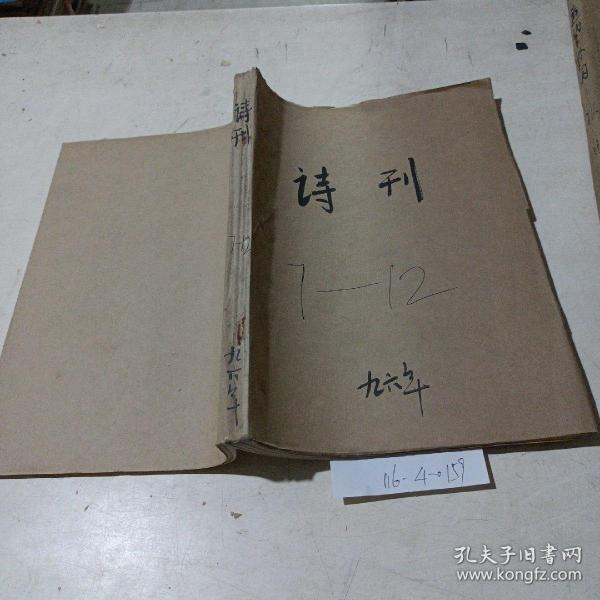 诗刊
7-12
九六年
诗刊
7—12
九六年
116-4-0159
孔夫子旧书网
www.kongfz.com